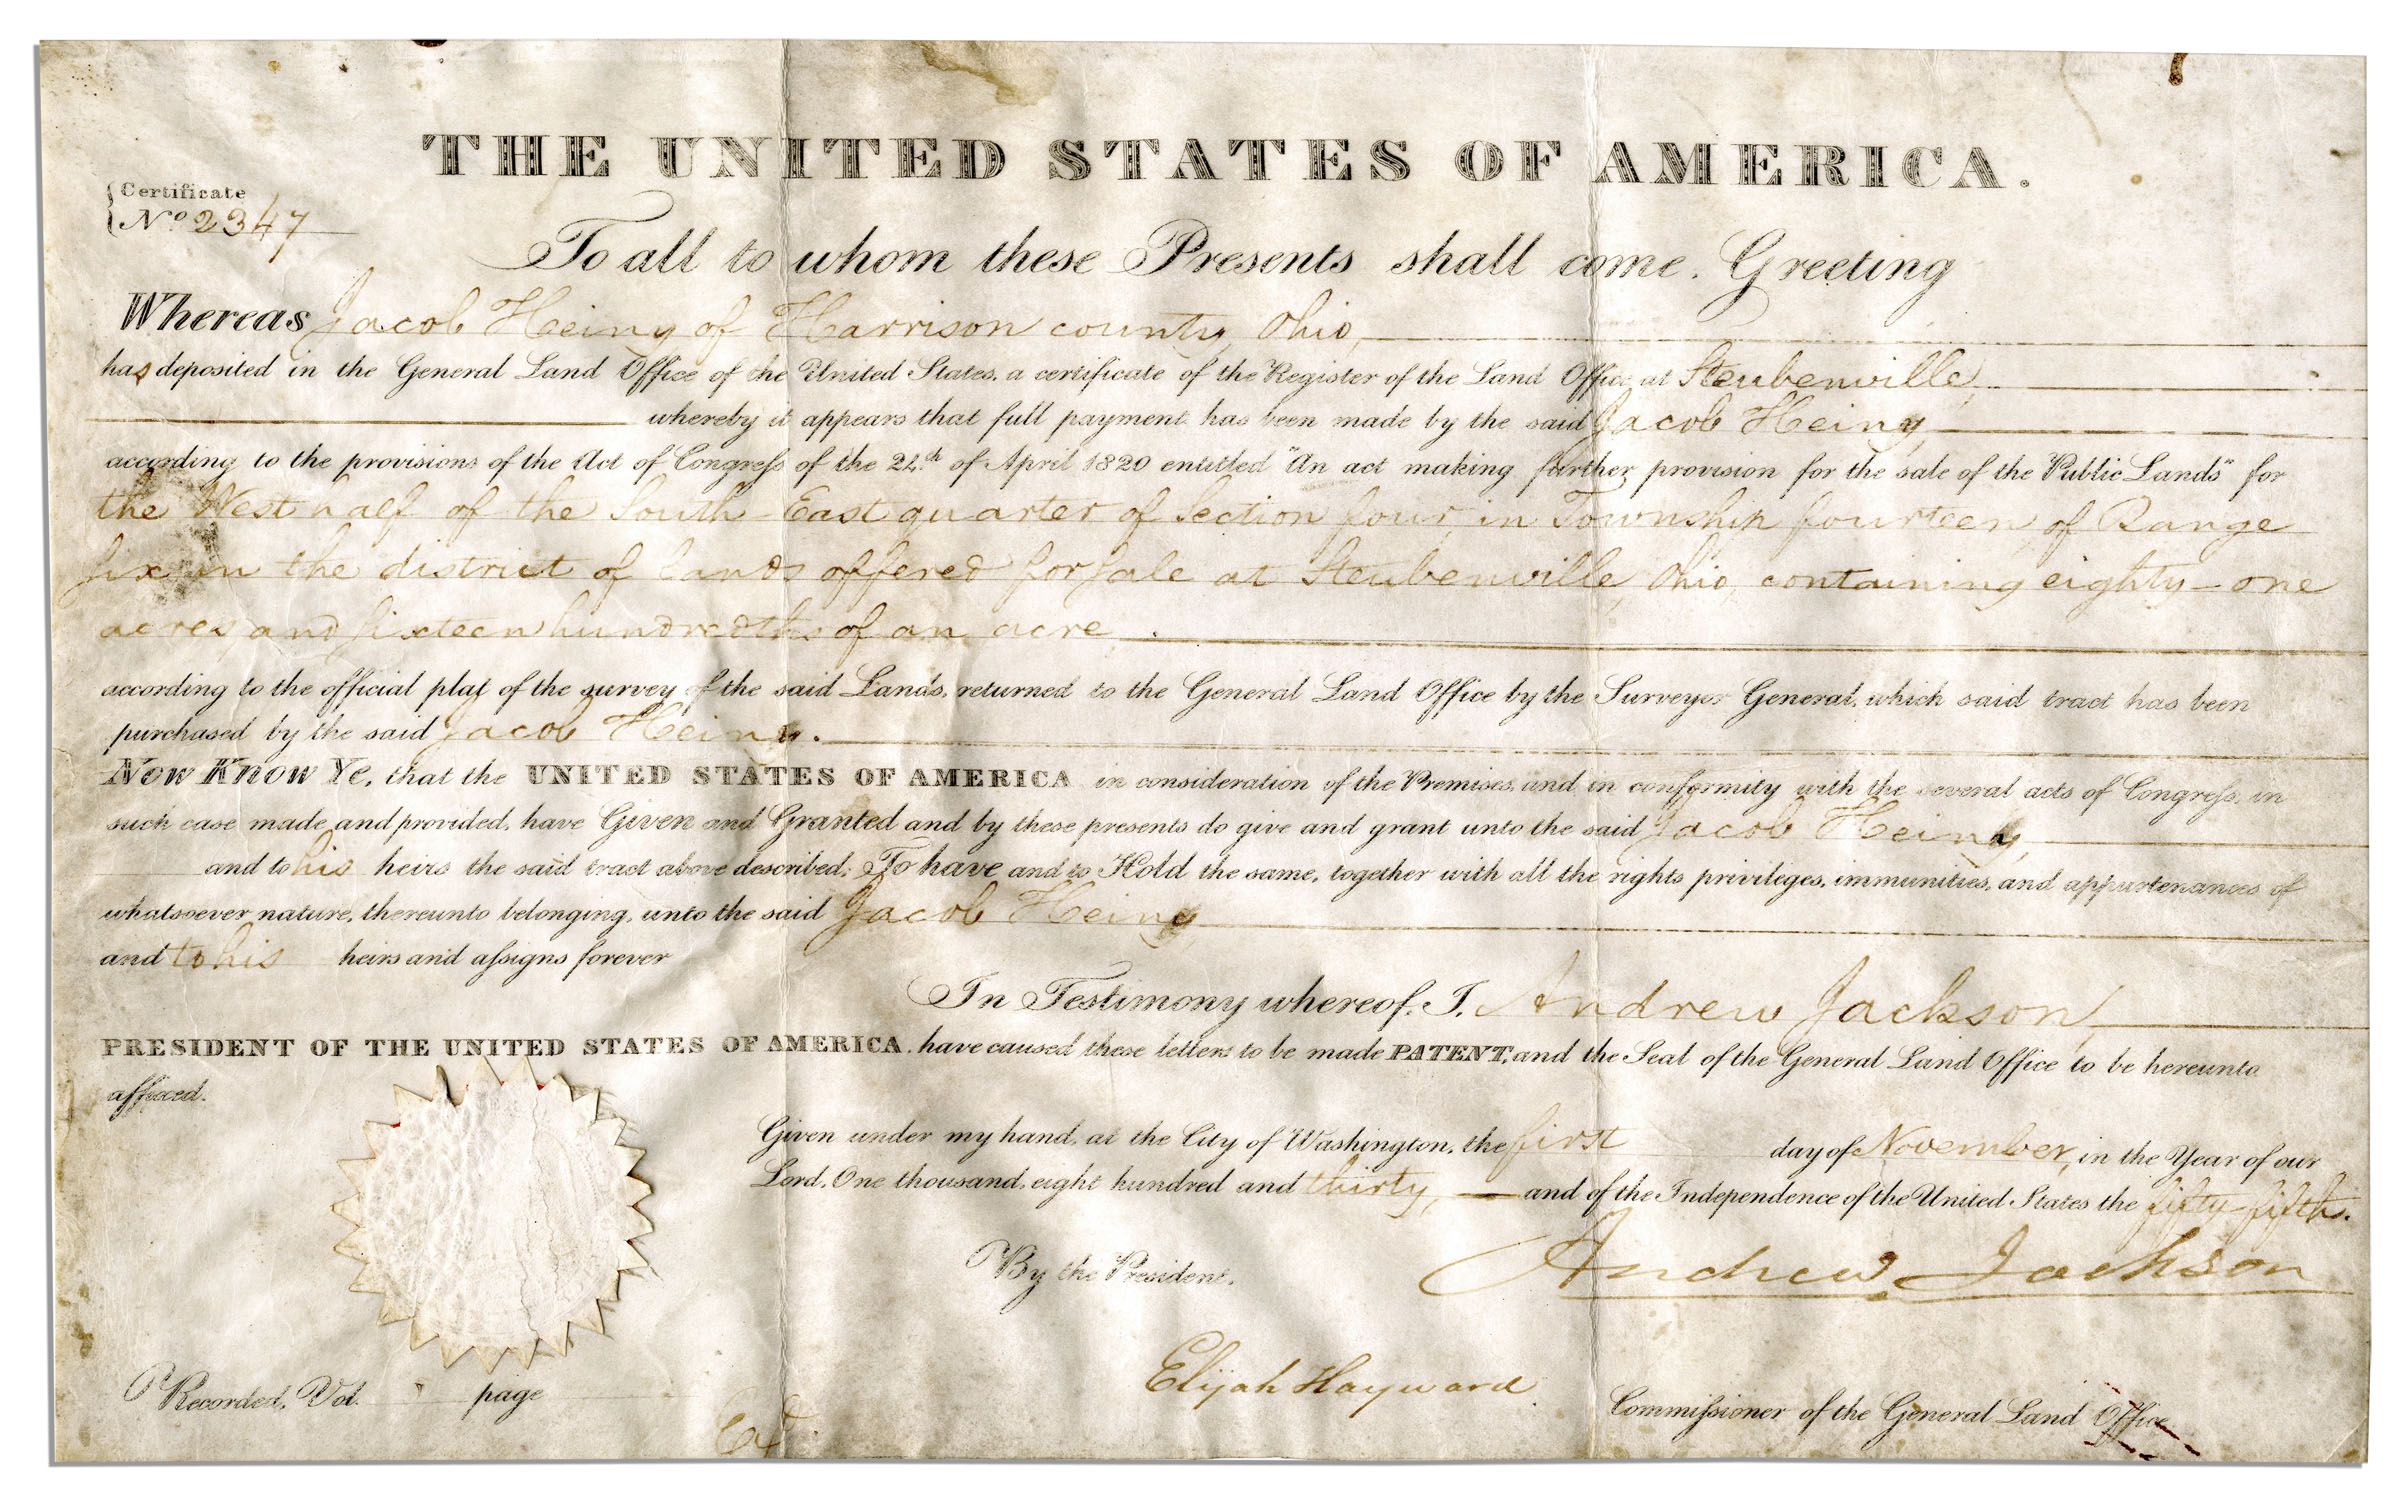 THE UNITED STATES OF AMERICA.
Certificate
No 2347
To all to whom these Presents shall come, Greeting
Whereas Jacob Heiny of Harrison county, Ohio,
has deposited in the General Land Office of the United States, a certificate of the Register of the Land Office at Steubenville,
whereby it appears that full payment has been made by the said Jacob Heiny
according to the provisions of the Act of Congress of the 24th of April 1820 entitled "An act making further provision for the sale of the Public Lands" for
the West half of the South East quarter of Section four, in Township fourteen, of Range
Six in the district of lands offered for sale at Steubenville, Ohio, containing eighty-one
acres, and sixteen hundredths of an acre,
according to the official plat of the survey of the said Lands, returned to the General Land Office by the Surveyor General, which said tract has been
purchased by the said Jacob Heiny.
Now Know Ye, that the UNITED STATES OF AMERICA in consideration of the Premises, and in conformity with the several acts of Congress, in
such case made and provided, have Given and Granted and by these presents do give and grant unto the said Jacob Heiny,
and to his heirs the said tract above described; To have and to Hold the same, together with all the rights privileges, immunities, and appurtenances of
whatsoever nature, thereunto belonging, unto the said Jacob Heiny
and to his heirs and assigns forever
In Testimony whereof, I, Andrew Jackson,
PRESIDENT OF THE UNITED STATES OF AMERICA, have caused these letters to be made PATENT, and the Seal of the General Land Office to be hereunto
affixed.
Given under my hand, at the City of Washington, the first day of November, in the Year of our
Lord, One thousand, eight hundred and thirty, and of the Independence of the United States the fifty fifth.
By the President,
Andrew Jackson
Elijah Hayward
Commissioner of the General Land Office
Recorded, Vol. page